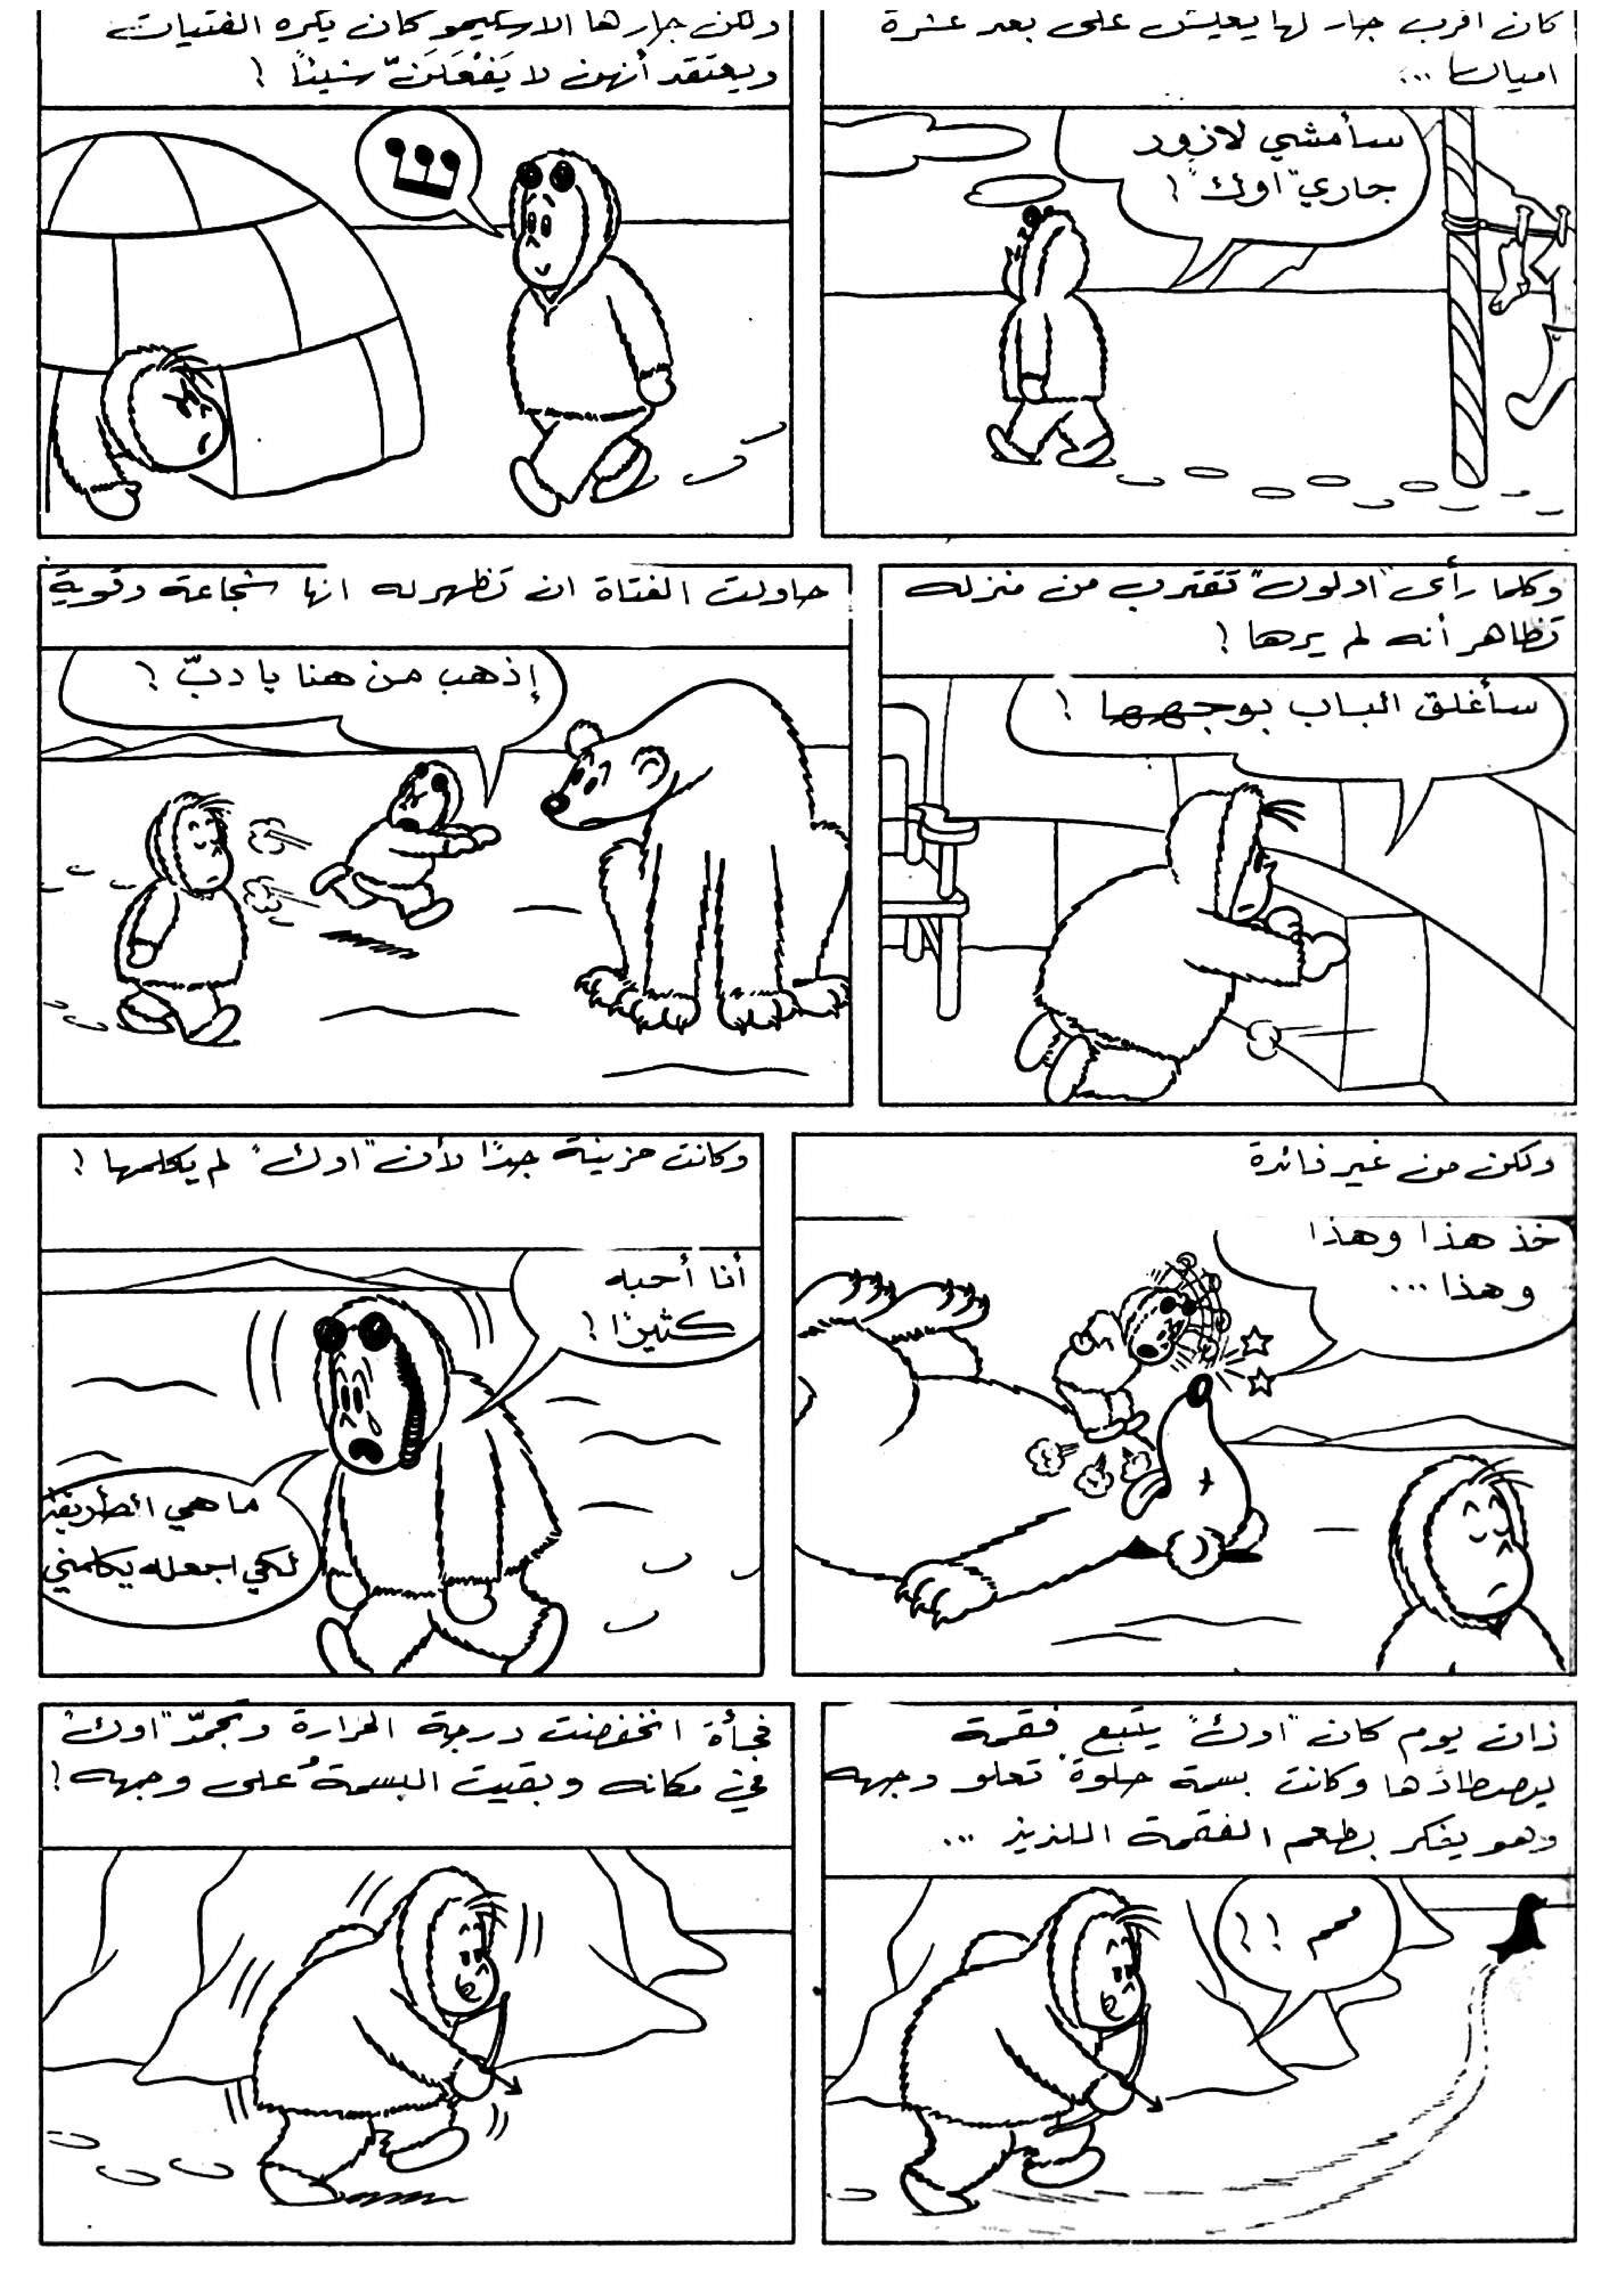 كان اقرب جار لها يعيش على بعد عشرة
اميال ...
سأمشي لازور
جاري "اوك" !
ولكن جارها الاسكيمو كان يكره الفتيات
ويعتقد أنهن لا يَفْعَلَنّ شيئاً !
وكلما رأى "اولون" تقترب من منزله
تظاهر أنه لم يرها !
سأغلق الباب بوجهها !
حاولت الفتاة ان تظهر له انها شجاعة وقوية
إذهب من هنا يا دبّ !
ولكن من غير فائدة
خذ هذا وهذا
وهذا ...
وكانت حزينة جداً لأن "اوك" لم يكلمها !
أنا أحبه
كثيرًا !
ما هي الطريقة
لكي اجعله يكلمني
ذات يوم كان "اوك" يتبع فقمة
ليصطادها وكانت بسمة حلوة تعلو وجهه
وهو يفكر بطعم الفقمة اللذيذ ...
م !!
فجأة انخفضت درجة الحرارة وتجمّد "اوك"
في مكانه وبقيت البسمة على وجهه !